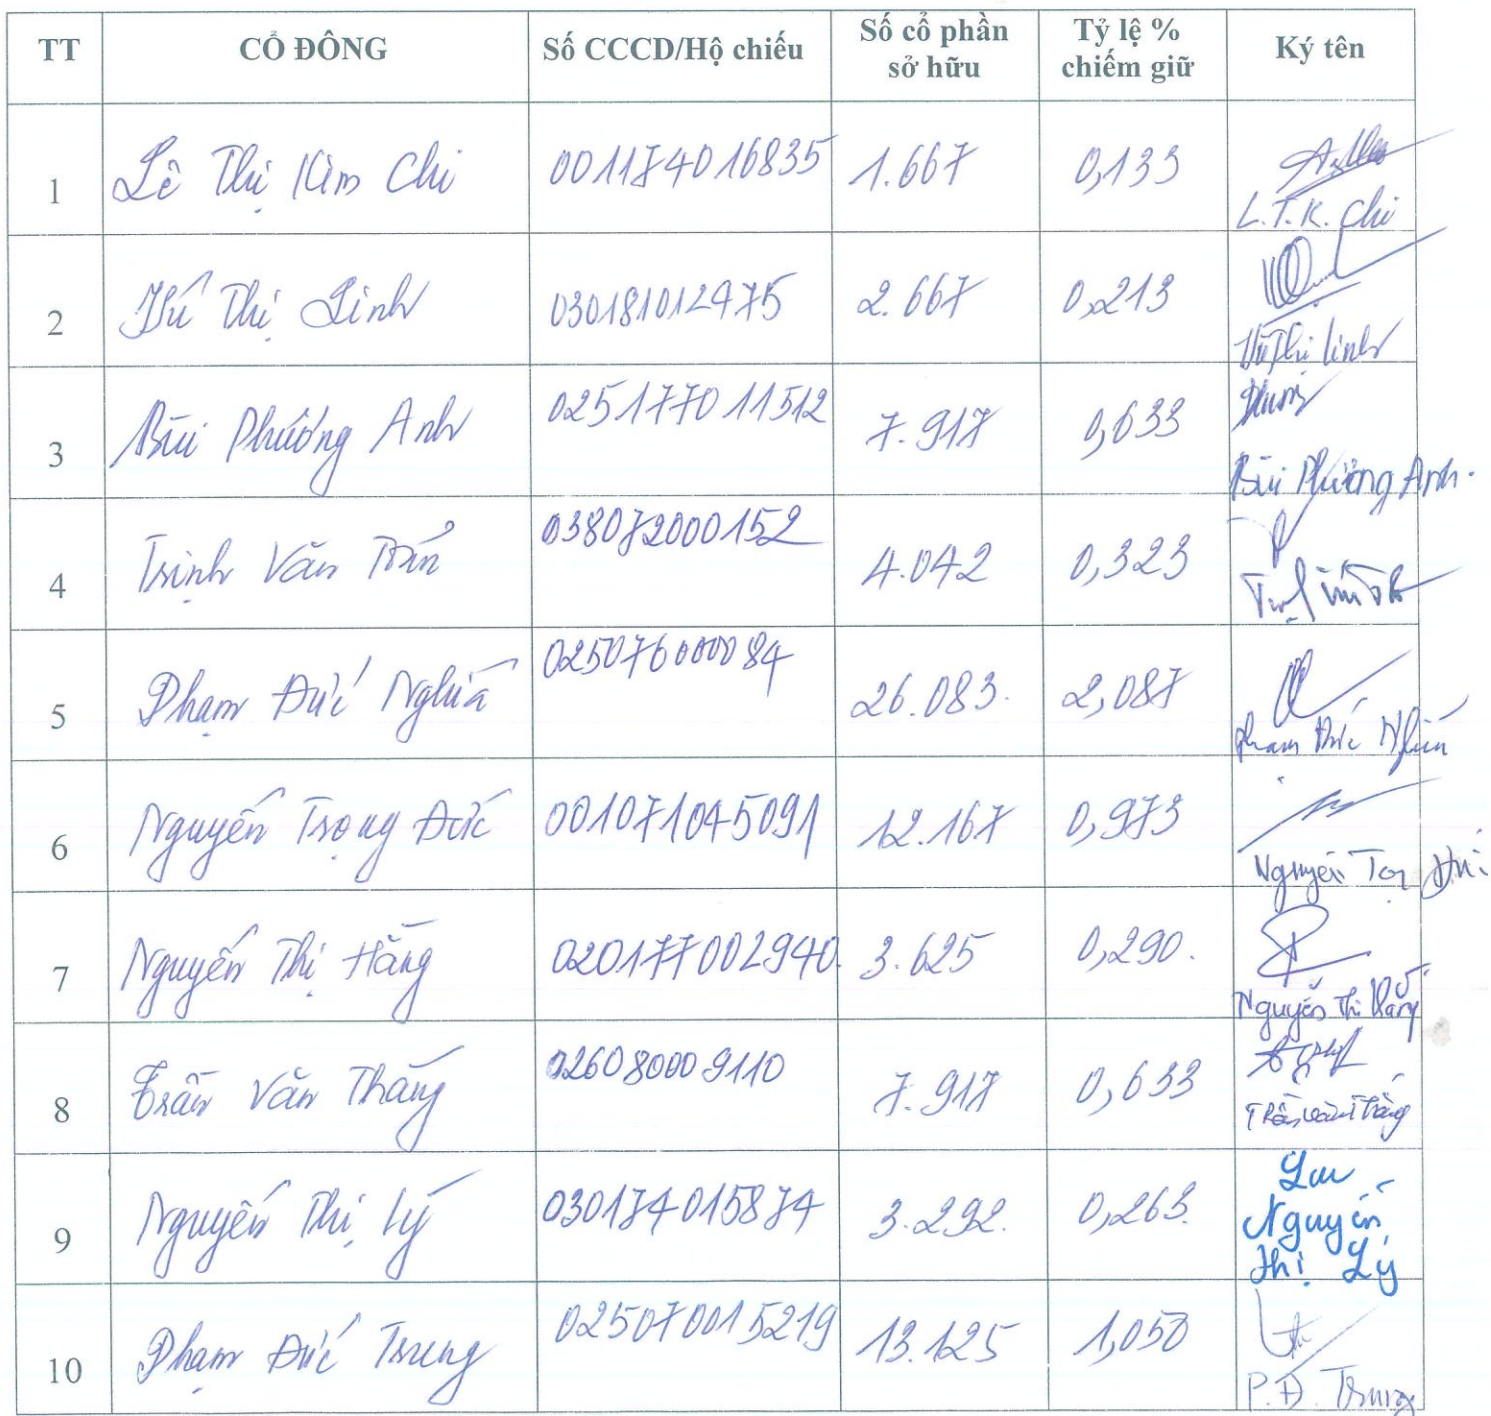 TT CỔ ĐÔNG Số CCCD/Hộ chiếu Số cổ phần sở hữu Tỷ lệ % chiếm giữ Ký tên
1 Lê Thị Kim Chi 001174016835 1.667 0,133 L.T.K. Chi
2 Vũ Thị Linh 030181012475 2.667 0,213 Vũ Thị Linh
3 Bùi Phương Anh 025177011512 7.917 0,633 Bùi Phương Anh.
4 Trịnh Văn 038072000152 4.042 0,323
5 Phạm Đức Nghĩa 025076000084 26.083. 2,087 Phạm Đức Nghĩa
6 Nguyễn Trọng Đức 001071045091 12.167 0,973 Nguyễn Trọng Đức
7 Nguyễn Thị Hằng 020177002940. 3.625 0,290. Nguyễn Thị Hằng
8 Trần Văn Thắng 026080009110 7.917 0,633 Trần Văn Thắng
9 Nguyễn Thị Lý 030174015874 3.292. 0,263. Nguyễn Thị Lý
10 Phạm Đức Trung 025070015219 13.125 1,050 P.Đ. Trung